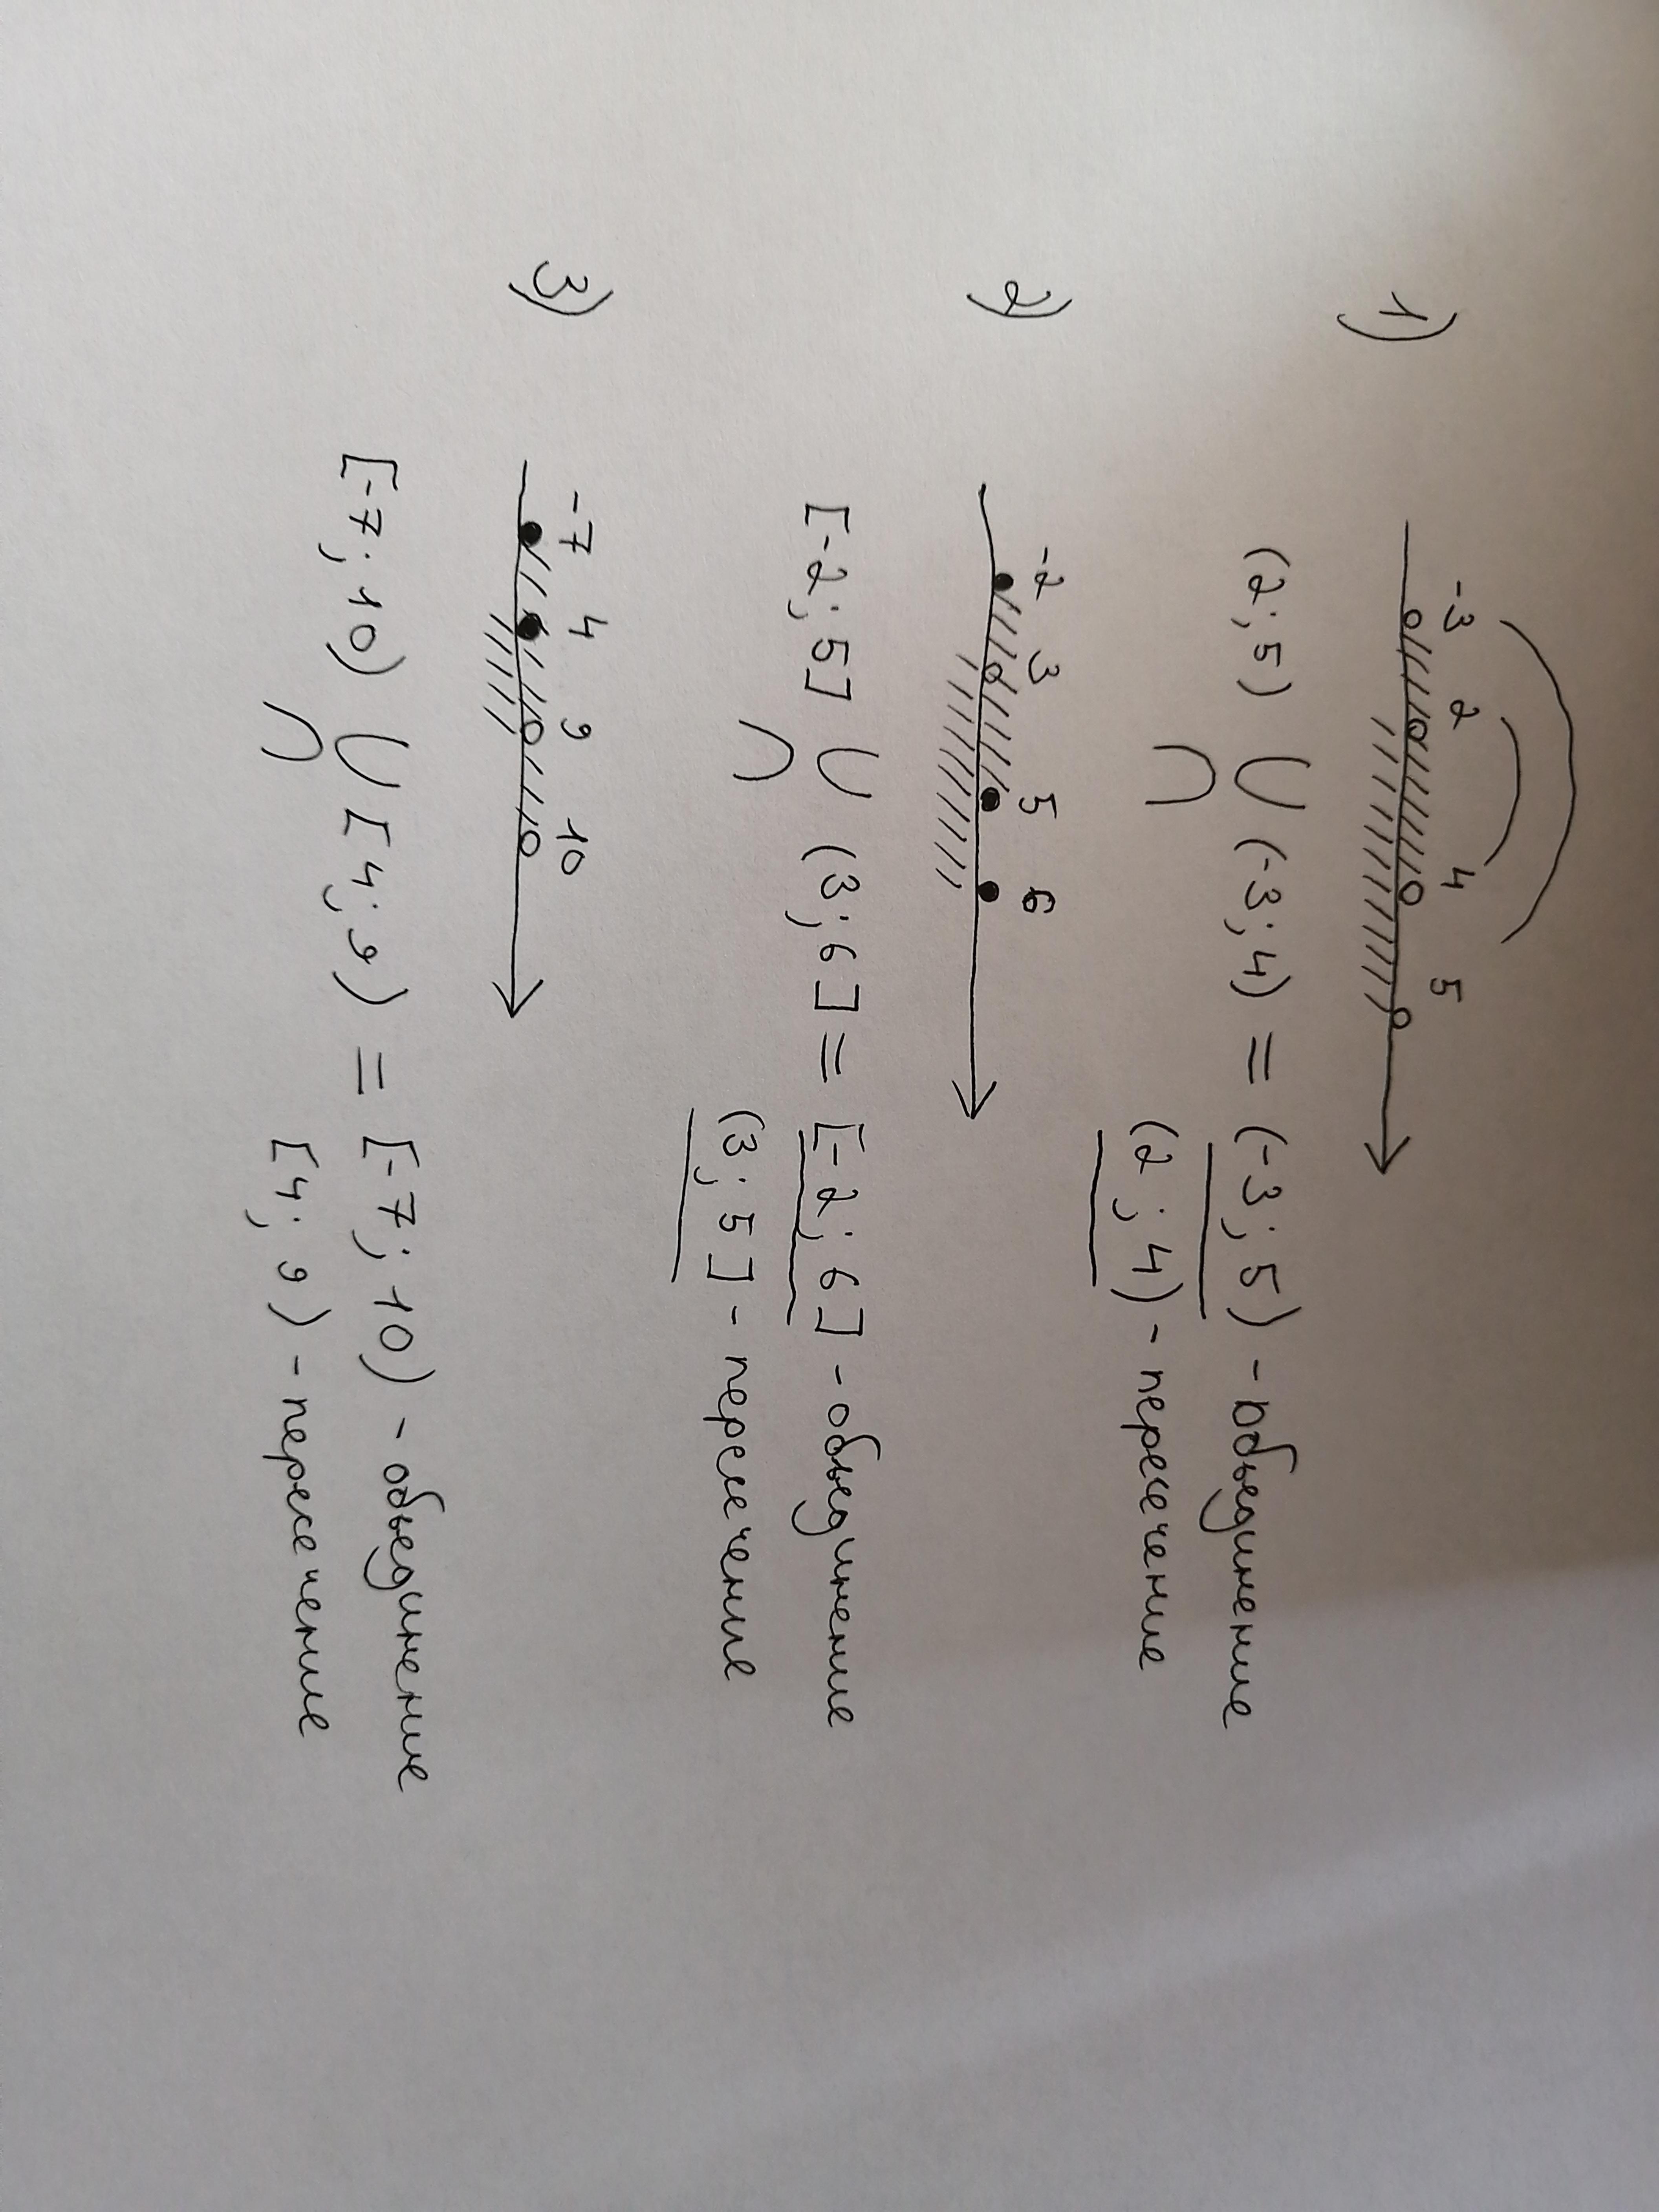 1) -3 2 4 5
(2; 5) ∪ (-3; 4) = (-3; 5) - объединение
∩ (2; 4) - пересечение
2) -2 3 5 6
[-2; 5] ∪ (3; 6] = [-2; 6] - объединение
∩ (3; 5] - пересечение
3) -7 4 9 10
[-7; 10) ∪ [4; 9) = [-7; 10) - объединение
∩ [4; 9) - пересечение